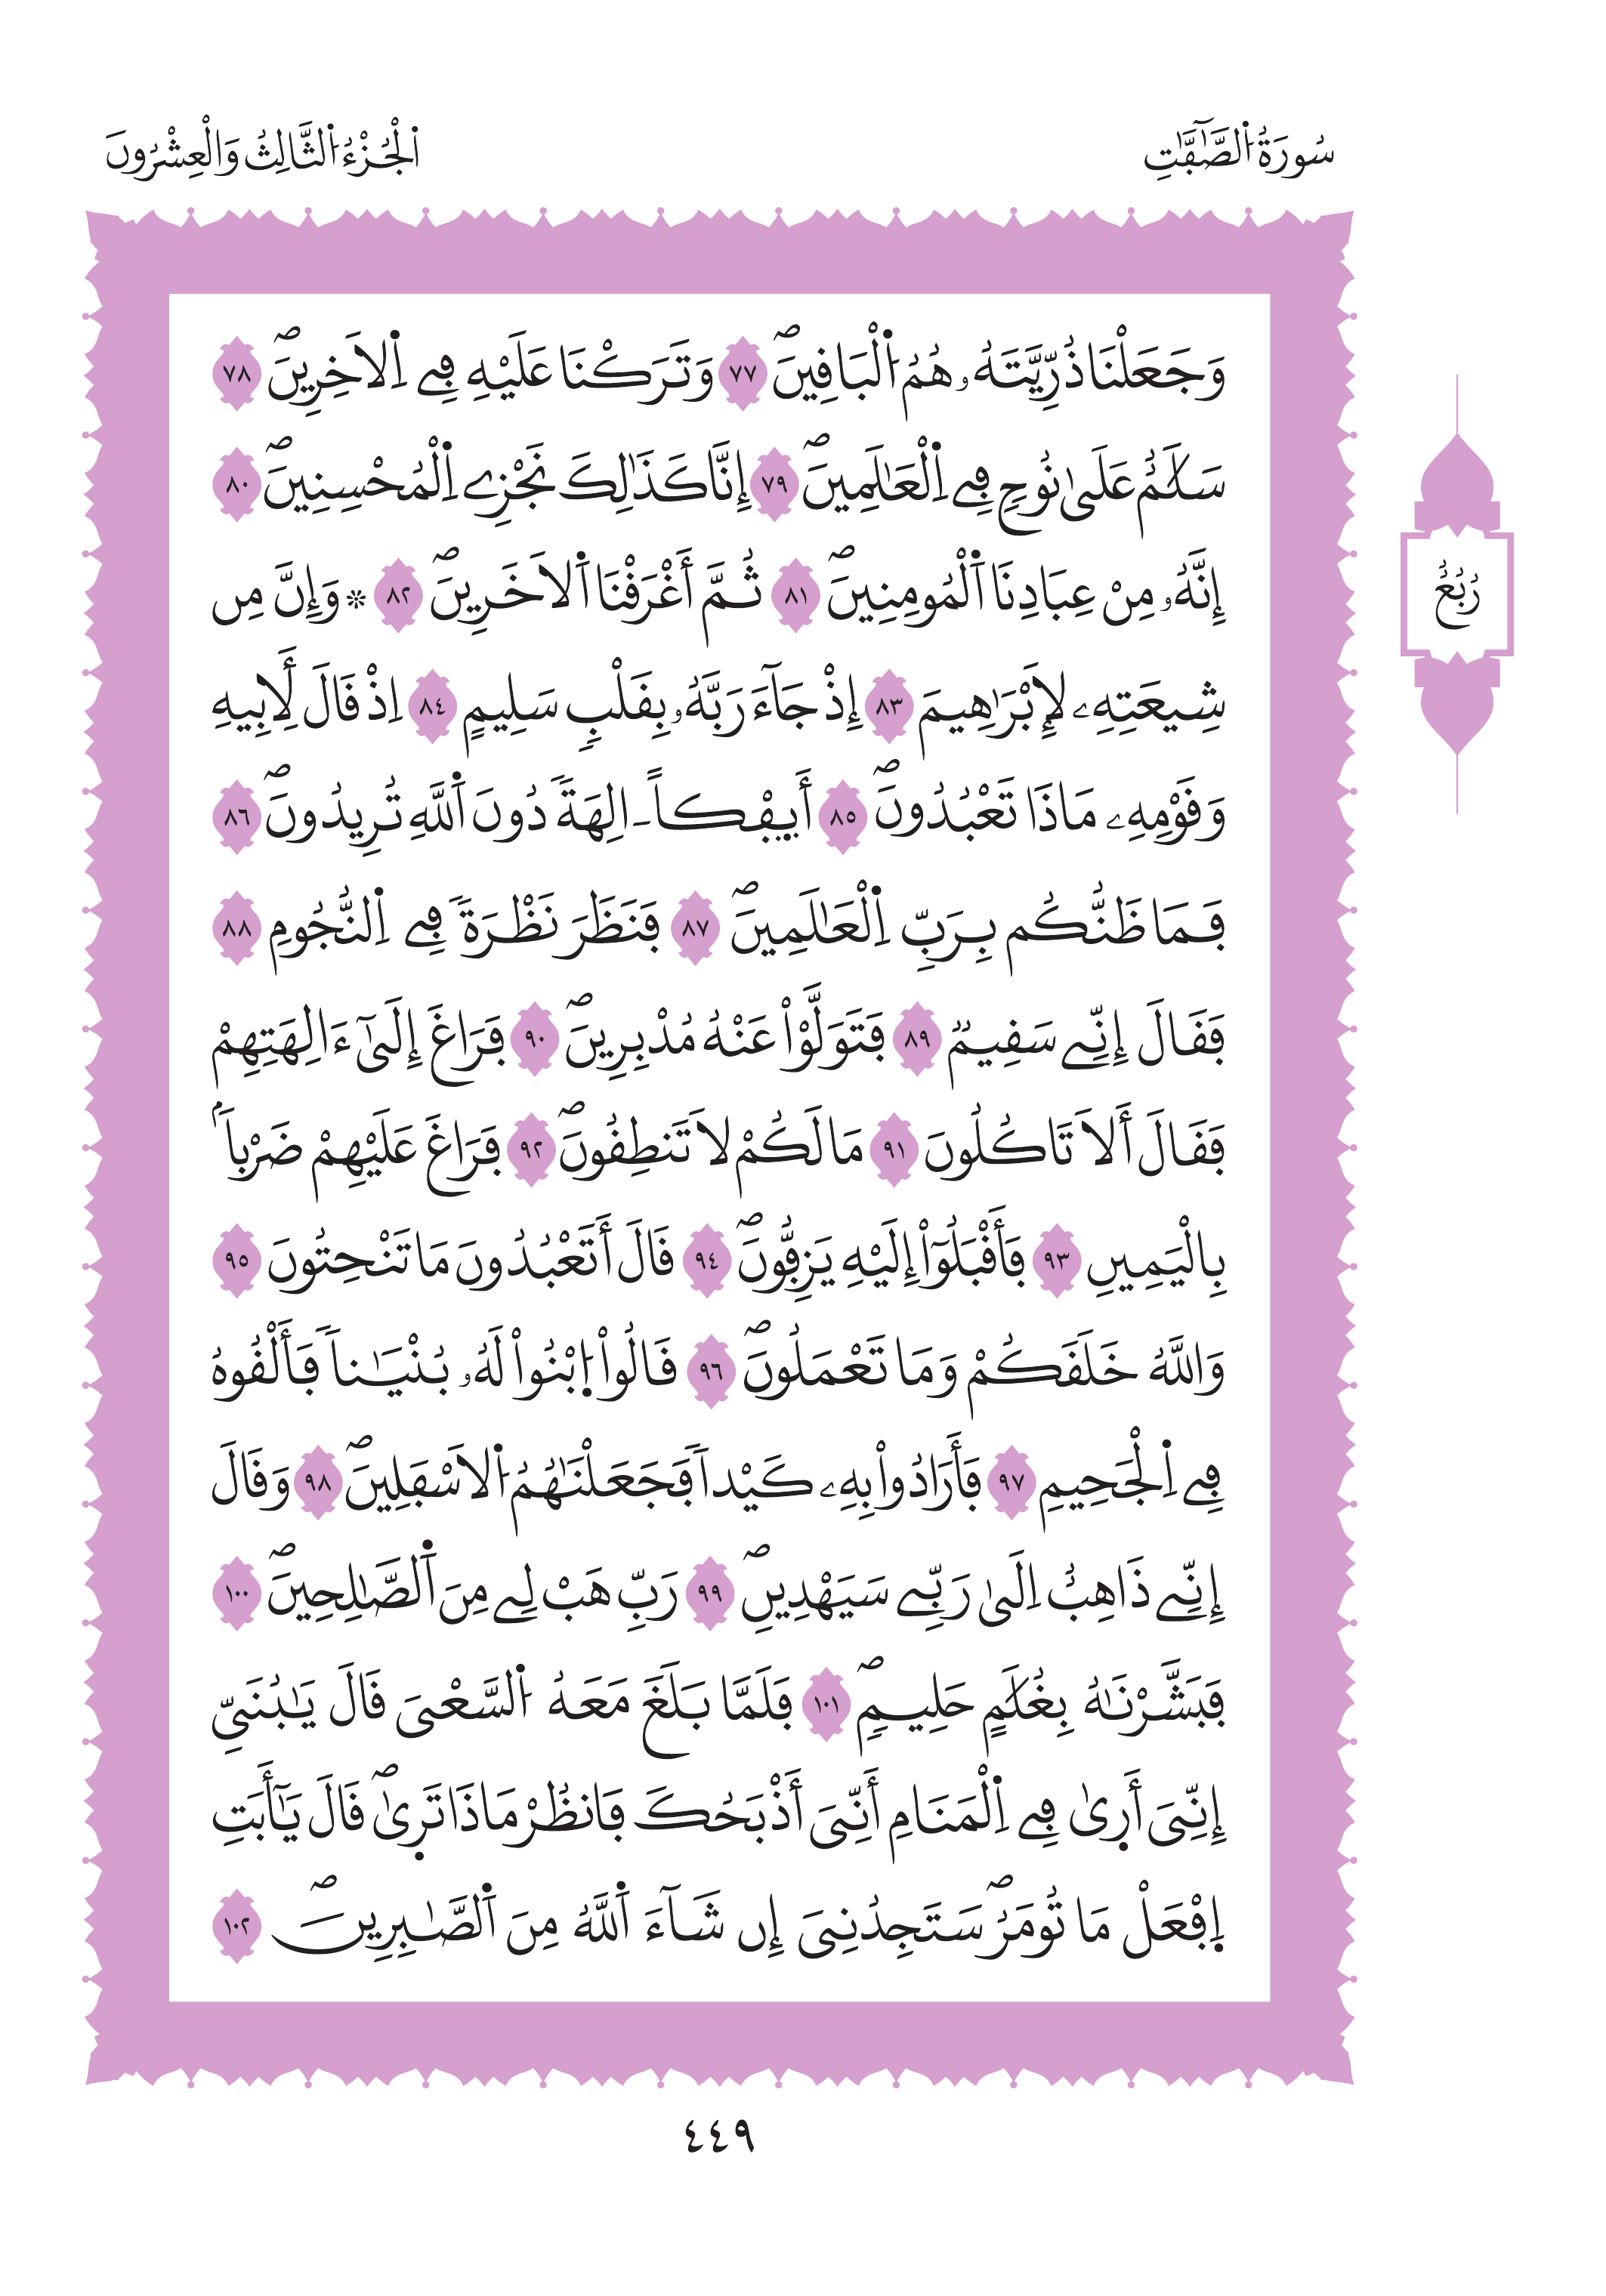 سُورَةُ اُ۬لصَّٰٓفَّٰتِ
اَ۬لْجُزْءُ اُ۬لثَّالِثُ وَالْعِشْرُونَ
وَجَعَلْنَا ذُرِّيَّتَهُۥ هُمُ اُ۬لْبَاقِينَۖ ٧٧ وَتَرَكْنَا عَلَيْهِ فِے اِ۬لَاخِرِينَۖ ٧٨
سَلَٰمٌ عَلَىٰ نُوحٖ فِے اِ۬لْعَٰلَمِينَۖ ٧٩ إِنَّا كَذَٰلِكَ نَجْزِے اِ۬لْمُحْسِنِينَۖ ٨٠
إِنَّهُۥ مِنْ عِبَادِنَا اَ۬لْمُومِنِينَۖ ٨١ ثُمَّ أَغْرَقْنَا اَ۬لَاخَرِينَۖ ٨٢ ۞ وَإِنَّ مِن
شِيعَتِهِۦ لَإِبْرَٰهِيمَ ٨٣ إِذْ جَآءَ رَبَّهُۥ بِقَلْبٖ سَلِيمٍ ٨٤ اِذْ قَالَ لِأَبِيهِ
وَقَوْمِهِۦ مَاذَا تَعْبُدُونَۖ ٨٥ أَئِفْكاً اٰلِهَةٗ دُونَ اَ۬للَّهِ تُرِيدُونَۖ ٨٦
فَمَا ظَنُّكُم بِرَبِّ اِ۬لْعَٰلَمِينَۖ ٨٧ فَنَظَرَ نَظْرَةٗ فِے اِ۬لنُّجُومِ ٨٨
فَقَالَ إِنِّے سَقِيمٞ ٨٩ فَتَوَلَّوْاْ عَنْهُ مُدْبِرِينَۖ ٩٠ فَرَاغَ إِلَىٰٓ ءَالِهَتِهِمْ
فَقَالَ أَلَا تَاكُلُونَ ٩١ مَا لَكُمْ لَا تَنطِقُونَۖ ٩٢ فَرَاغَ عَلَيْهِمْ ضَرْباَۢ
بِالْيَمِينِ ٩٣ فَأَقْبَلُوٓاْ إِلَيْهِ يَزِفُّونَۖ ٩٤ قَالَ أَتَعْبُدُونَ مَا تَنْحِتُونَ ٩٥
وَاللَّهُ خَلَقَكُمْ وَمَا تَعْمَلُونَۖ ٩٦ قَالُواْ اُ۪بْنُواْ لَهُۥ بُنْيَٰناٗ فَأَلْقُوهُ
فِے اِ۬لْجَحِيمِ ٩٧ فَأَرَادُواْ بِهِۦ كَيْداٗ فَجَعَلْنَٰهُمُ اُ۬لَاسْفَلِينَۖ ٩٨ وَقَالَ
إِنِّے ذَاهِبٌ اِلَىٰ رَبِّے سَيَهْدِينِۖ ٩٩ رَبِّ هَبْ لِے مِنَ اَ۬لصَّٰلِحِينَۖ ١٠٠
فَبَشَّرْنَٰهُ بِغُلَٰمٍ حَلِيمٖۖ ١٠١ فَلَمَّا بَلَغَ مَعَهُ اُ۬لسَّعْىَ قَالَ يَٰبُنَىِّ
إِنِّىَ أَر۪ىٰ فِے اِ۬لْمَنَامِ أَنِّىَ أَذْبَحُكَ فَانظُرْ مَاذَا تَر۪ىٰۖ قَالَ يَٰٓأَبَتِ
اِ۪فْعَلْ مَا تُومَرُۖ سَتَجِدُنِىَ إِن شَآءَ اَ۬للَّهُ مِنَ اَ۬لصَّٰبِرِينَۖ ١٠٢
رُبُعُ
٤٤٩